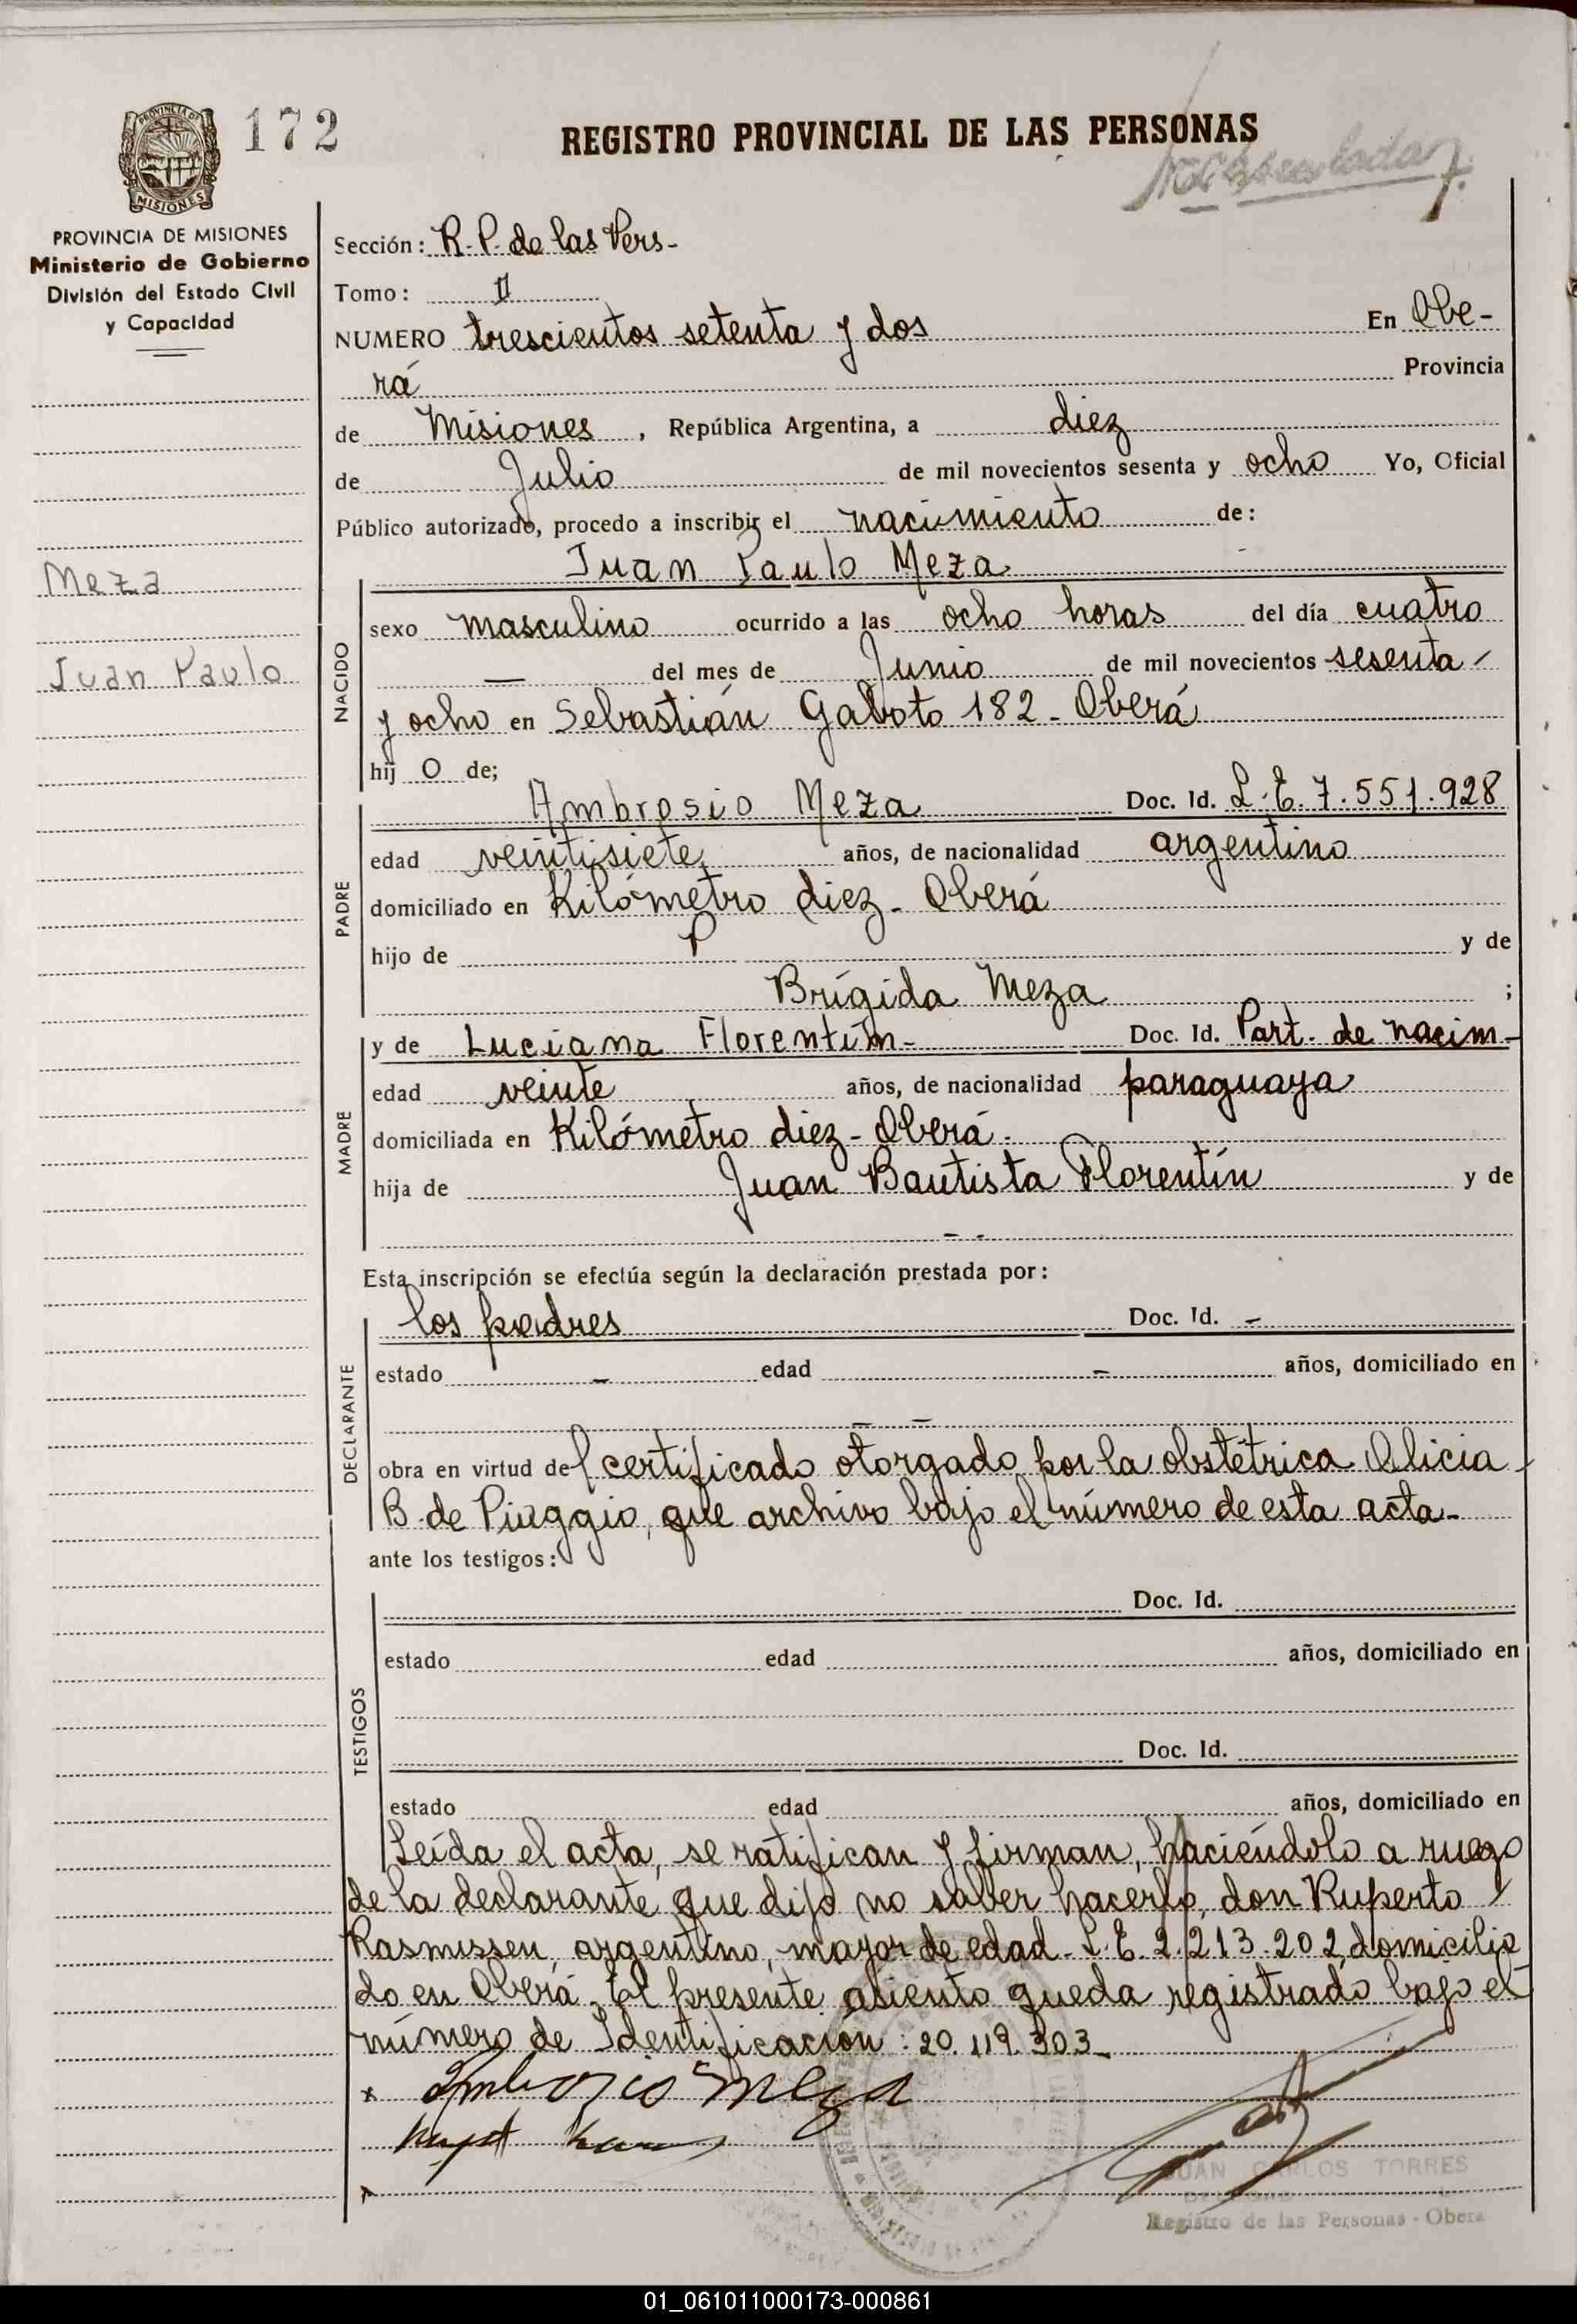 172
REGISTRO PROVINCIAL DE LAS PERSONAS
PROVINCIA DE MISIONES
Ministerio de Gobierno
División del Estado Civil
y Capacidad
Meza
Juan Paulo
Sección: R. P. de las Pers-
Tomo: II
NUMERO trescientos setenta y dos En Obe-
rá Provincia
de Misiones, República Argentina, a diez
de Julio de mil novecientos sesenta y ocho Yo, Oficial
Público autorizado, procedo a inscribir el nacimiento de:
Juan Paulo Meza
NACIDO
sexo masculino ocurrido a las ocho horas del día cuatro
— del mes de Junio de mil novecientos sesenta
y ocho en Sebastián Gaboto 182 - Oberá
hij o de;
PADRE
Ambrosio Meza Doc. Id. L. E. 7.551.928
edad veintisiete años, de nacionalidad argentino
domiciliado en Kilómetro diez - Oberá
hijo de y de
Brígida Meza ;
MADRE
y de Luciana Florentín - Doc. Id. Part. de nacim-
edad veinte años, de nacionalidad paraguaya
domiciliada en Kilómetro diez - Oberá.
hija de Juan Bautista Florentín y de
- -
Esta inscripción se efectúa según la declaración prestada por:
DECLARANTE
los padres Doc. Id. -
estado - edad - años, domiciliado en
- -
obra en virtud del certificado otorgado por la obstétrica Alicia
B. de Piaggio, que archivo bajo el número de esta acta-
ante los testigos:
TESTIGOS
Doc. Id.
estado edad años, domiciliado en
Doc. Id.
estado edad años, domiciliado en
Leída el acta, se ratifican y firman, haciéndolo a ruego
de la declarante que dijo no saber hacerlo, don Ruperto
Rasmussen, argentino, mayor de edad - L. E. 2.213.202, domicilia
do en Oberá. El presente asiento queda registrado bajo el
número de Identificación: 20.119.303-
x Ambrosio Meza
JUAN CARLOS TORRES
Registro de las Personas - Obera
01_061011000173-000861